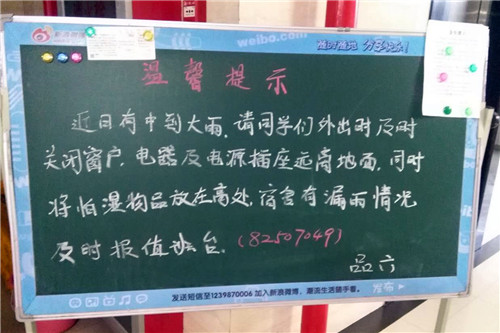 新浪微博
weibo.com
随时随地 分享快乐!
温馨提示
近日有中到大雨,请同学们外出时及时
关闭窗户,电器及电源插座远离地面,同时
将怕湿物品放在高处,宿舍有漏雨情况
及时报值班台。(82507049)
品六
发送短信至1239870006 加入新浪微博,潮流生活随手看。
发布